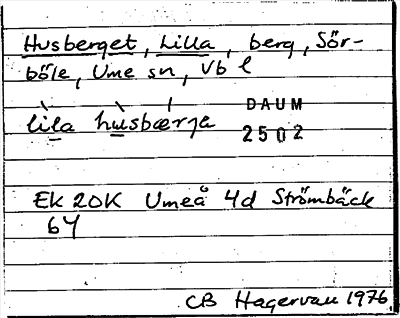 Husberget, Lilla, berg, Sör-
böle, Ume sn, Vb l
DAUM
lila husbærja
2502
Ek 20K Umeå 4d Strömbäck
6y
CB Hagervall 1976